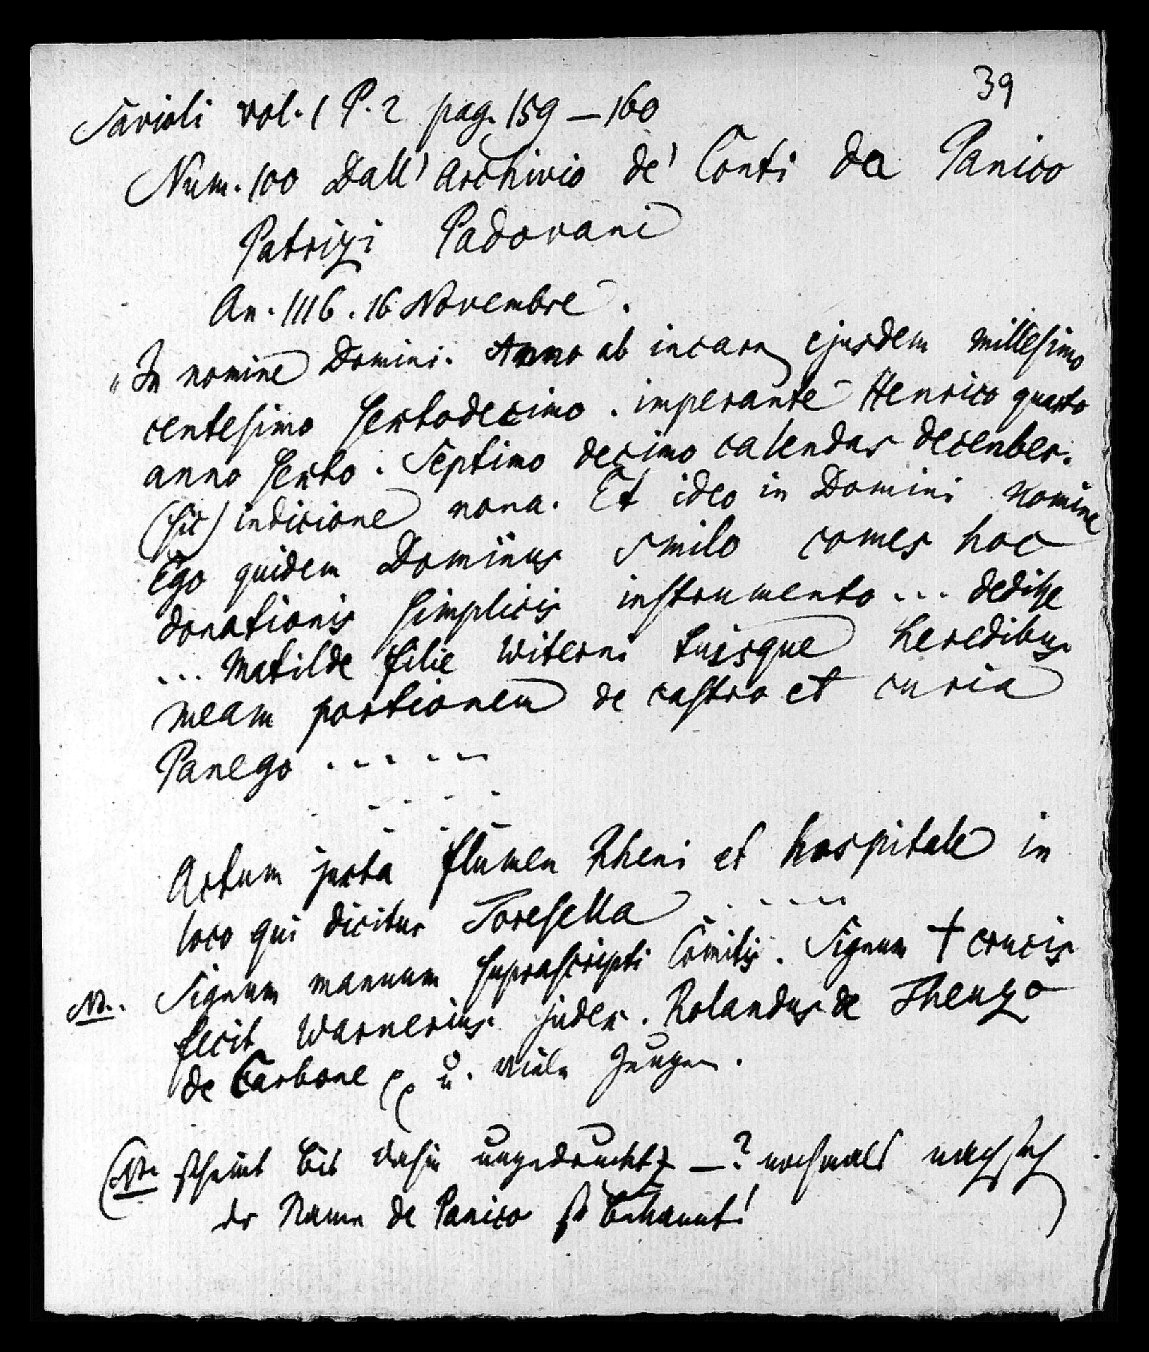 39
Savioli vol. 1 P. 2 pag. 159 – 160
Num. 100 Dall' Archivio de' Conti da Panico
Patrizi Padovani
An. 1116. 16 Novembre.
„In nomine Domini. Anno ab incarn ejusdem millesimo
centesimo sextodecimo. imperante Henrico quarto
anno sexto. Septimo decimo calendas decenber.
(sic) indicione nona. Et ideo in Domini nomine
Ego quidem Dominus Smilo comes hoc
donationis simplicis instrumento ... dedisse
... Matilde filie Witerni suisque heredibus
meam portionem de castro et curia
Panego - - - - -
- - - -
Actum juxta flumen Rheni et hospitale in
loco qui dicitur Toresella - - - - -
Signum manuum suprascripti Comitis. Signum † crucis
NB. fecit Warnerius judex. Rolandus de Thenzo
de Carbone u. viele Zeugen.
(NB. scheint bis dahin ungedruckt – ? nochmals
der Name de Panico ist bekannt! )